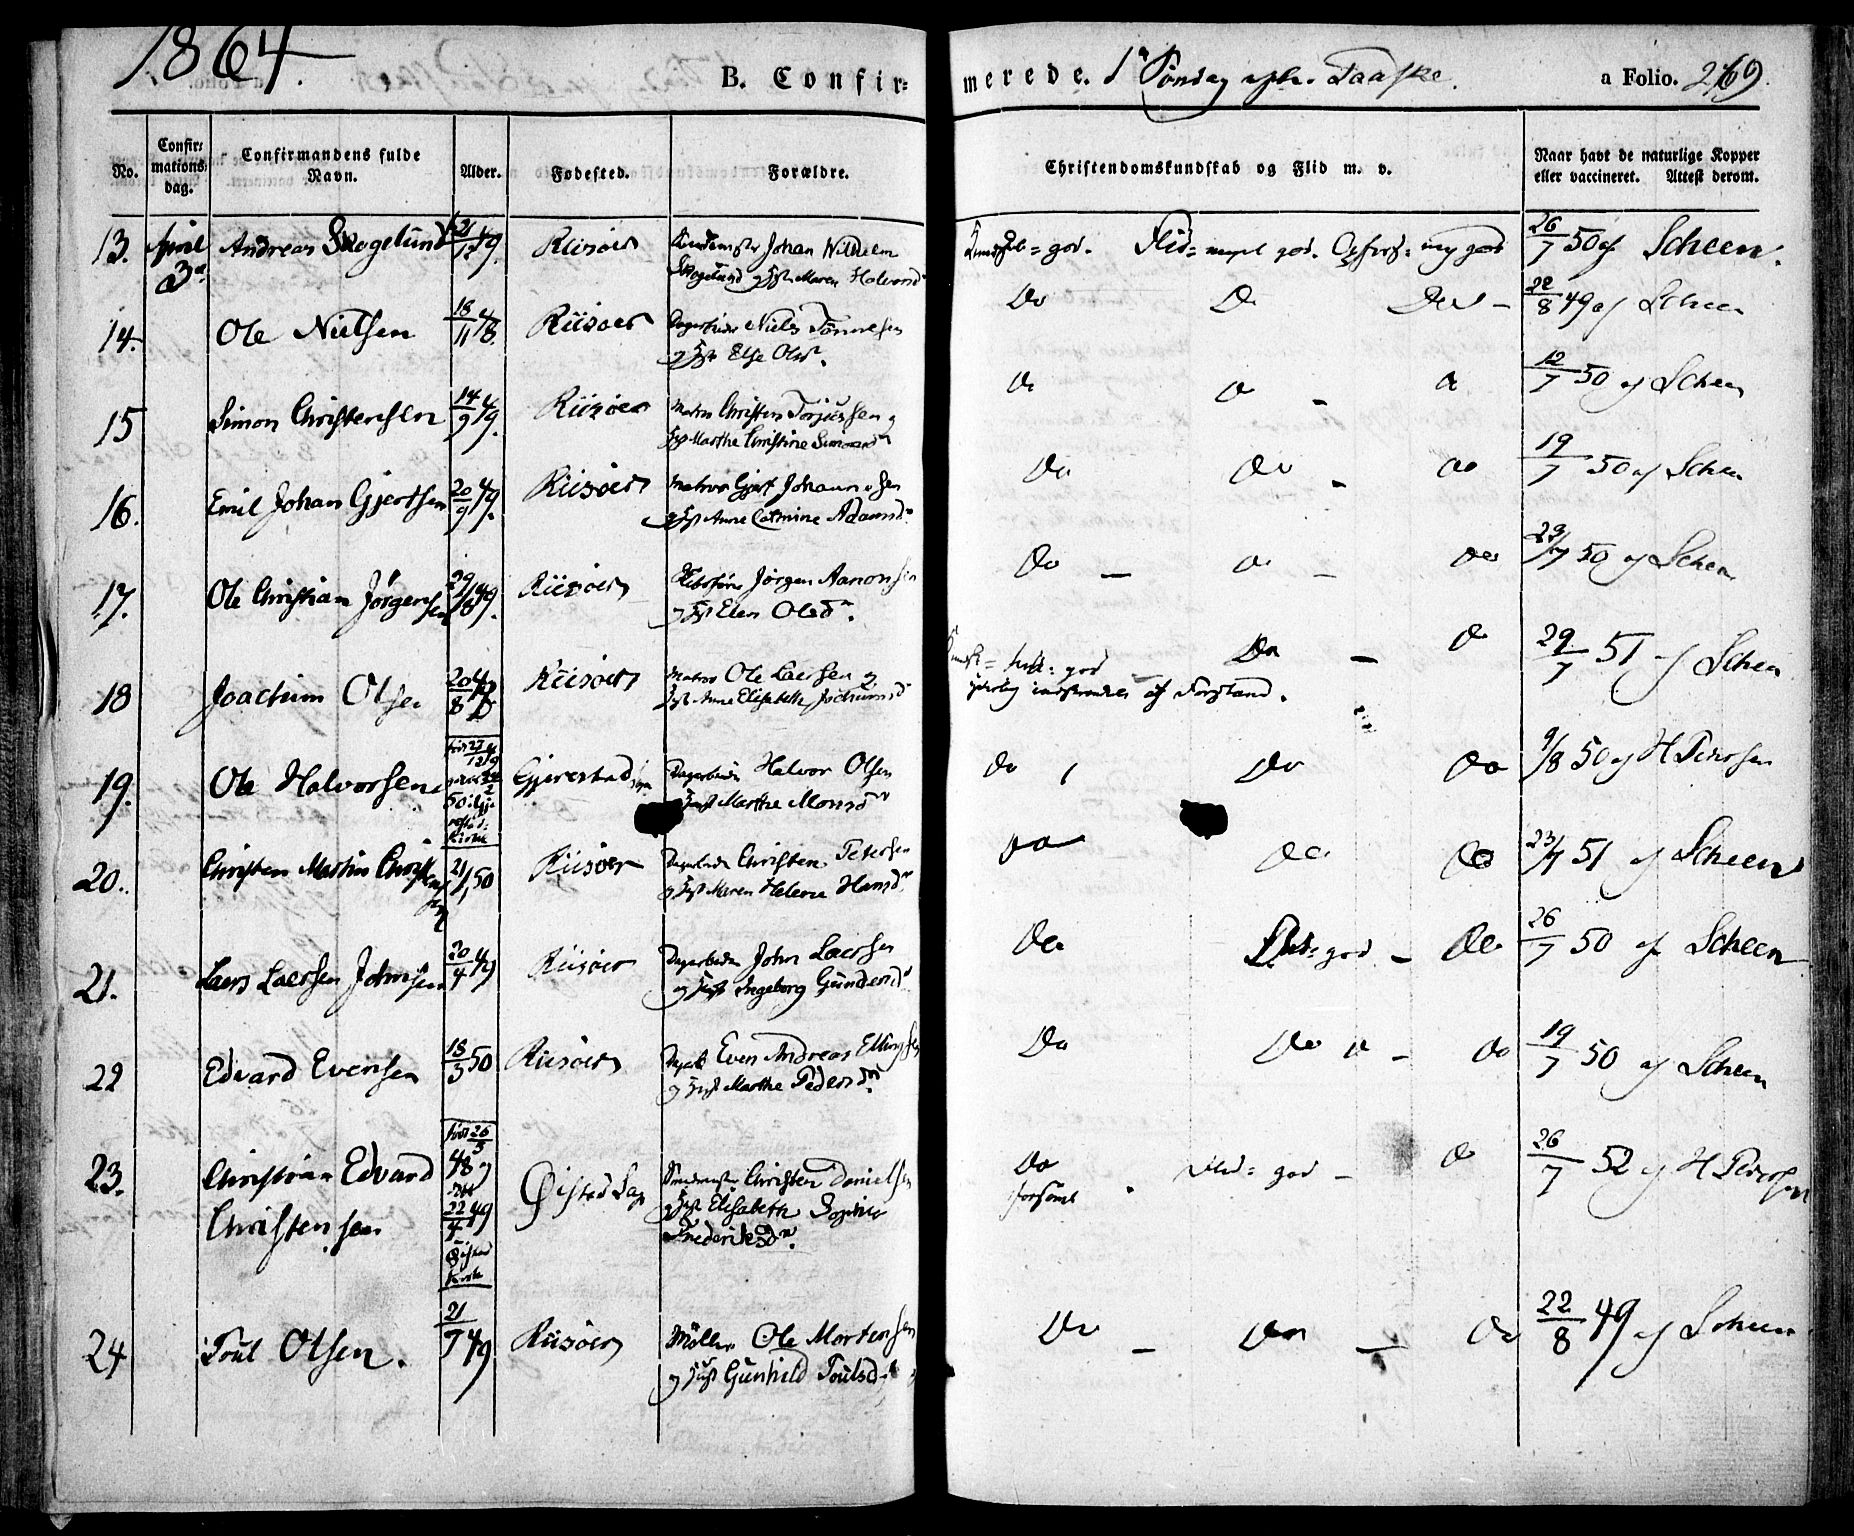 1864.
B. Confirmerede. 1ste Søndag efter Paaske. a Folio. 269.
No.
Confirmationsdag.
Confirmandens fulde Navn.
Alder.
Fødested.
Forældre.
Christendomskundskab og Flid m. v.
Naar havt de naturlige Kopper eller vaccineret. Attest derom.
13. April 3die Andreas Skogelund 21/12 49. Riisøer
Johan Wilhelm
Skogelund og Hust. Maren Halvorsd.
Kundskab = god. Flid = meget god. Opførs = meg god
26/7 50 af Scheen.
14. Ole Nielsen 18/11 48. Riisøer
Dagarbeider Niels Tønnesen
og Hust. Else Olsd.
Do Do Do
22/8 49 af Scheen
15 Simon Christensen 14/9 49. Riisøer
Matros Christen Torjussen og
Hust Marthe Christine Simonsd
Do Do Do
12/7 50 af Scheen
16. Emil Johan Gjertsen 20/9 49. Riisøer
Matros Gjert Johannesen
og Hust Anne Catrine Adamsd
Do Do Do
19/7 50 af Scheen
17. Ole Christian Jørgensen 29/10 49. Riisøer
Jørgen Aanonsen
og Hust Elen Olsd.
Do Do Do
23/7 50 af Scheen
18 Joachim Olsen 20/8 47 Riisøer
Matros Ole Larsen og
Hust Anne Elisabeth Jochumsd
god Do Do
af Forstand.
29/7 51 af Scheen
19. Ole Halvorsen født 27/12 49 Gjerestad
50 i Gjerestad Kirke
Dagarbeider Halvor Olsen
og Hust Marthe Monsd
Do Do Do
9/8 50 af H Pedersen
20. Christen Martin Christensen 21/1 50 Riisøer
Dagarbeider Christen Petersen
og Hust Maren Helene Hansd.
Do Do Do
23/7 51 af Scheen
21. Laers Laersen Johnsen 20/4 49 Riisøer
Dagarbeider John Laersen
og Hust Ingeborg Gundersd
Do Flid = god Do
26/7 50 af Scheen
22 Edvard Evensen 18/3 50 Riisøer
Even Andreas Ellingsen
og Hust Marthe Pedersd.
Do Do Do
19/7 50 af Scheen
23. Christian Edvard født 26/3 48 Øisted Sogn
Christensen 22/4 49 Øisted Kirke
Christen Danielsen
og Hust Elisabeth Sophie
Frederiksd.
Do Flid = god Do
forsømt
26/7 52 af H Pedersen
24 Poul Olsen. 21/7 49 Riisøer
Møller Ole Mortensen
og Hust Gunhild Poulsd.
Do Do Do
22/8 49 af Scheen